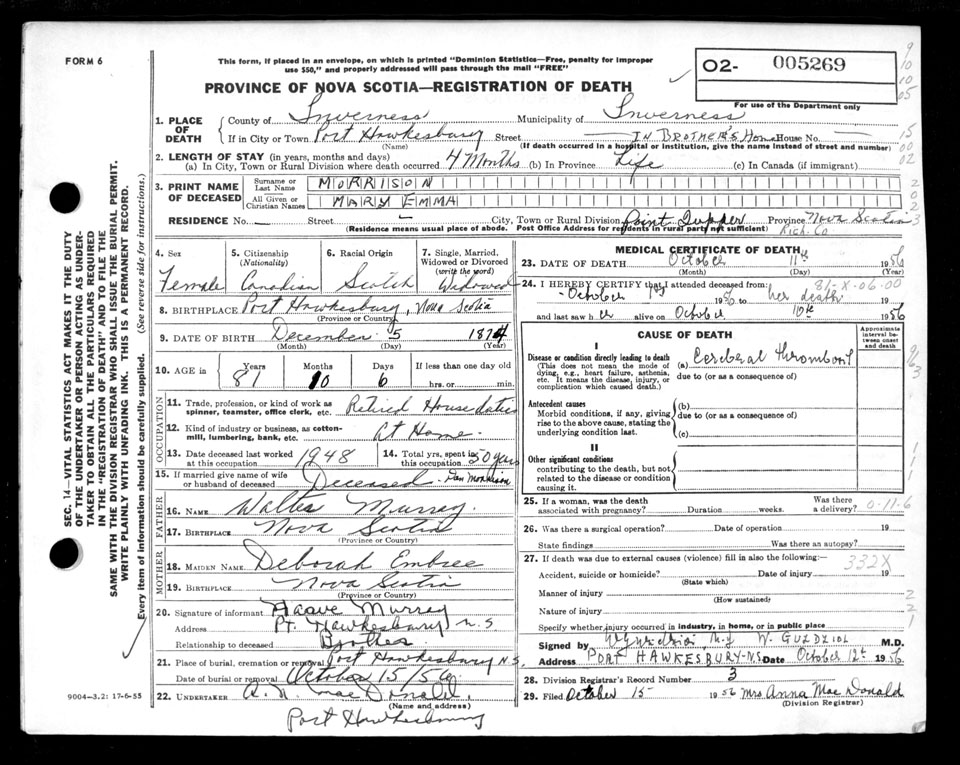 FORM 6
This form, if placed in an envelope, on which is printed "Dominion Statistics—Free, penalty for improper
use $50," and properly addressed will pass through the mail "FREE"
PROVINCE OF NOVA SCOTIA—REGISTRATION OF DEATH
O2- 005269
For use of the Department only
1. PLACE OF DEATH
County of Inverness Municipality of Inverness
If in City or Town Port Hawkesbury Street — IN BROTHER'S Home House No. —
(Name) (If death occurred in a hospital or institution, give the name instead of street and number)
2. LENGTH OF STAY (in years, months and days)
(a) In City, Town or Rural Division where death occurred 4 Months (b) In Province Life (c) In Canada (if immigrant)
3. PRINT NAME OF DECEASED
Surname or Last Name MORRISON
All Given or Christian Names MARY EMMA
RESIDENCE No. — Street — City, Town or Rural Division Point Tupper Province Nova Scotia
(Residence means usual place of abode. Post Office Address for residents in rural parts not sufficient) Rich. Co
4. Sex Female
5. Citizenship (Nationality) Canadian
6. Racial Origin Scotch
7. Single, Married, Widowed or Divorced (write the word) Widowed
8. BIRTHPLACE Port Hawkesbury, Nova Scotia
(Province or Country)
9. DATE OF BIRTH December 5 1874
(Month) (Day) (Year)
10. AGE in Years 81 Months 10 Days 6 If less than one day old hrs. or min.
OCCUPATION
11. Trade, profession, or kind of work as spinner, teamster, office clerk, etc. Retired House duties
12. Kind of industry or business, as cotton-mill, lumbering, bank, etc. At Home
13. Date deceased last worked at this occupation 1948
14. Total yrs. spent in this occupation 50 years
15. If married give name of wife or husband of deceased Deceased - Dan Morrison
FATHER
16. Name Walter Murray
17. Birthplace Nova Scotia
(Province or Country)
MOTHER
18. Maiden Name Deborah Embree
19. Birthplace Nova Scotia
(Province or Country)
20. Signature of informant Murray
Address Pt. Hawkesbury N.S
Relationship to deceased Brother
21. Place of burial, cremation or removal Port Hawkesbury N.S.
Date of burial or removal October 15/56
22. UNDERTAKER MacDonald,
(Name and address)
Port Hawkesbury
9004-3.2: 17-6-55
MEDICAL CERTIFICATE OF DEATH
23. DATE OF DEATH October 11th 1956
(Month) (Day) (Year)
24. I HEREBY CERTIFY that I attended deceased from: 86-X-06.00
October 1st 1956 to her death 19
and last saw h er alive on October 10th 1956
CAUSE OF DEATH
Approximate interval between onset and death
I
Disease or condition directly leading to death
(This does not mean the mode of dying, e.g., heart failure, asthenia, etc. It means the disease, injury, or complication which caused death.
(a) Cerebral thrombosis
due to (or as a consequence of)
Antecedent causes
Morbid conditions, if any, giving rise to the above cause, stating the underlying condition last.
(b)
due to (or as a consequence of)
(c)
II
Other significant conditions
contributing to the death, but not related to the disease or condition causing it.
25. If a woman, was the death associated with pregnancy? Duration weeks. Was there a delivery? 0-11.6
26. Was there a surgical operation? Date of operation 19
State findings Was there an autopsy?
27. If death was due to external causes (violence) fill in also the following:— 332X
Accident, suicide or homicide? Date of injury 19
(State which)
Manner of injury
(How sustained)
Nature of injury
Specify whether injury occurred in industry, in home, or in public place
Signed by W. GUZDZIOL M.D.
Address PORT HAWKESBURY-N.S Date October 12th 1956
28. Division Registrar's Record Number 3
29. Filed October 15 1956 Mrs Anna MacDonald
(Division Registrar)
SEC. 14—VITAL STATISTICS ACT MAKES IT THE DUTY
OF THE UNDERTAKER OR PERSON ACTING AS UNDER-
TAKER TO OBTAIN ALL THE PARTICULARS REQUIRED
IN THE "REGISTRATION OF DEATH" AND TO FILE THE
SAME WITH THE DIVISION REGISTRAR WHO SHALL ISSUE THE BURIAL PERMIT.
WRITE PLAINLY WITH UNFADING INK. THIS IS A PERMANENT RECORD.
Every item of information should be carefully supplied. (See reverse side for instructions.)